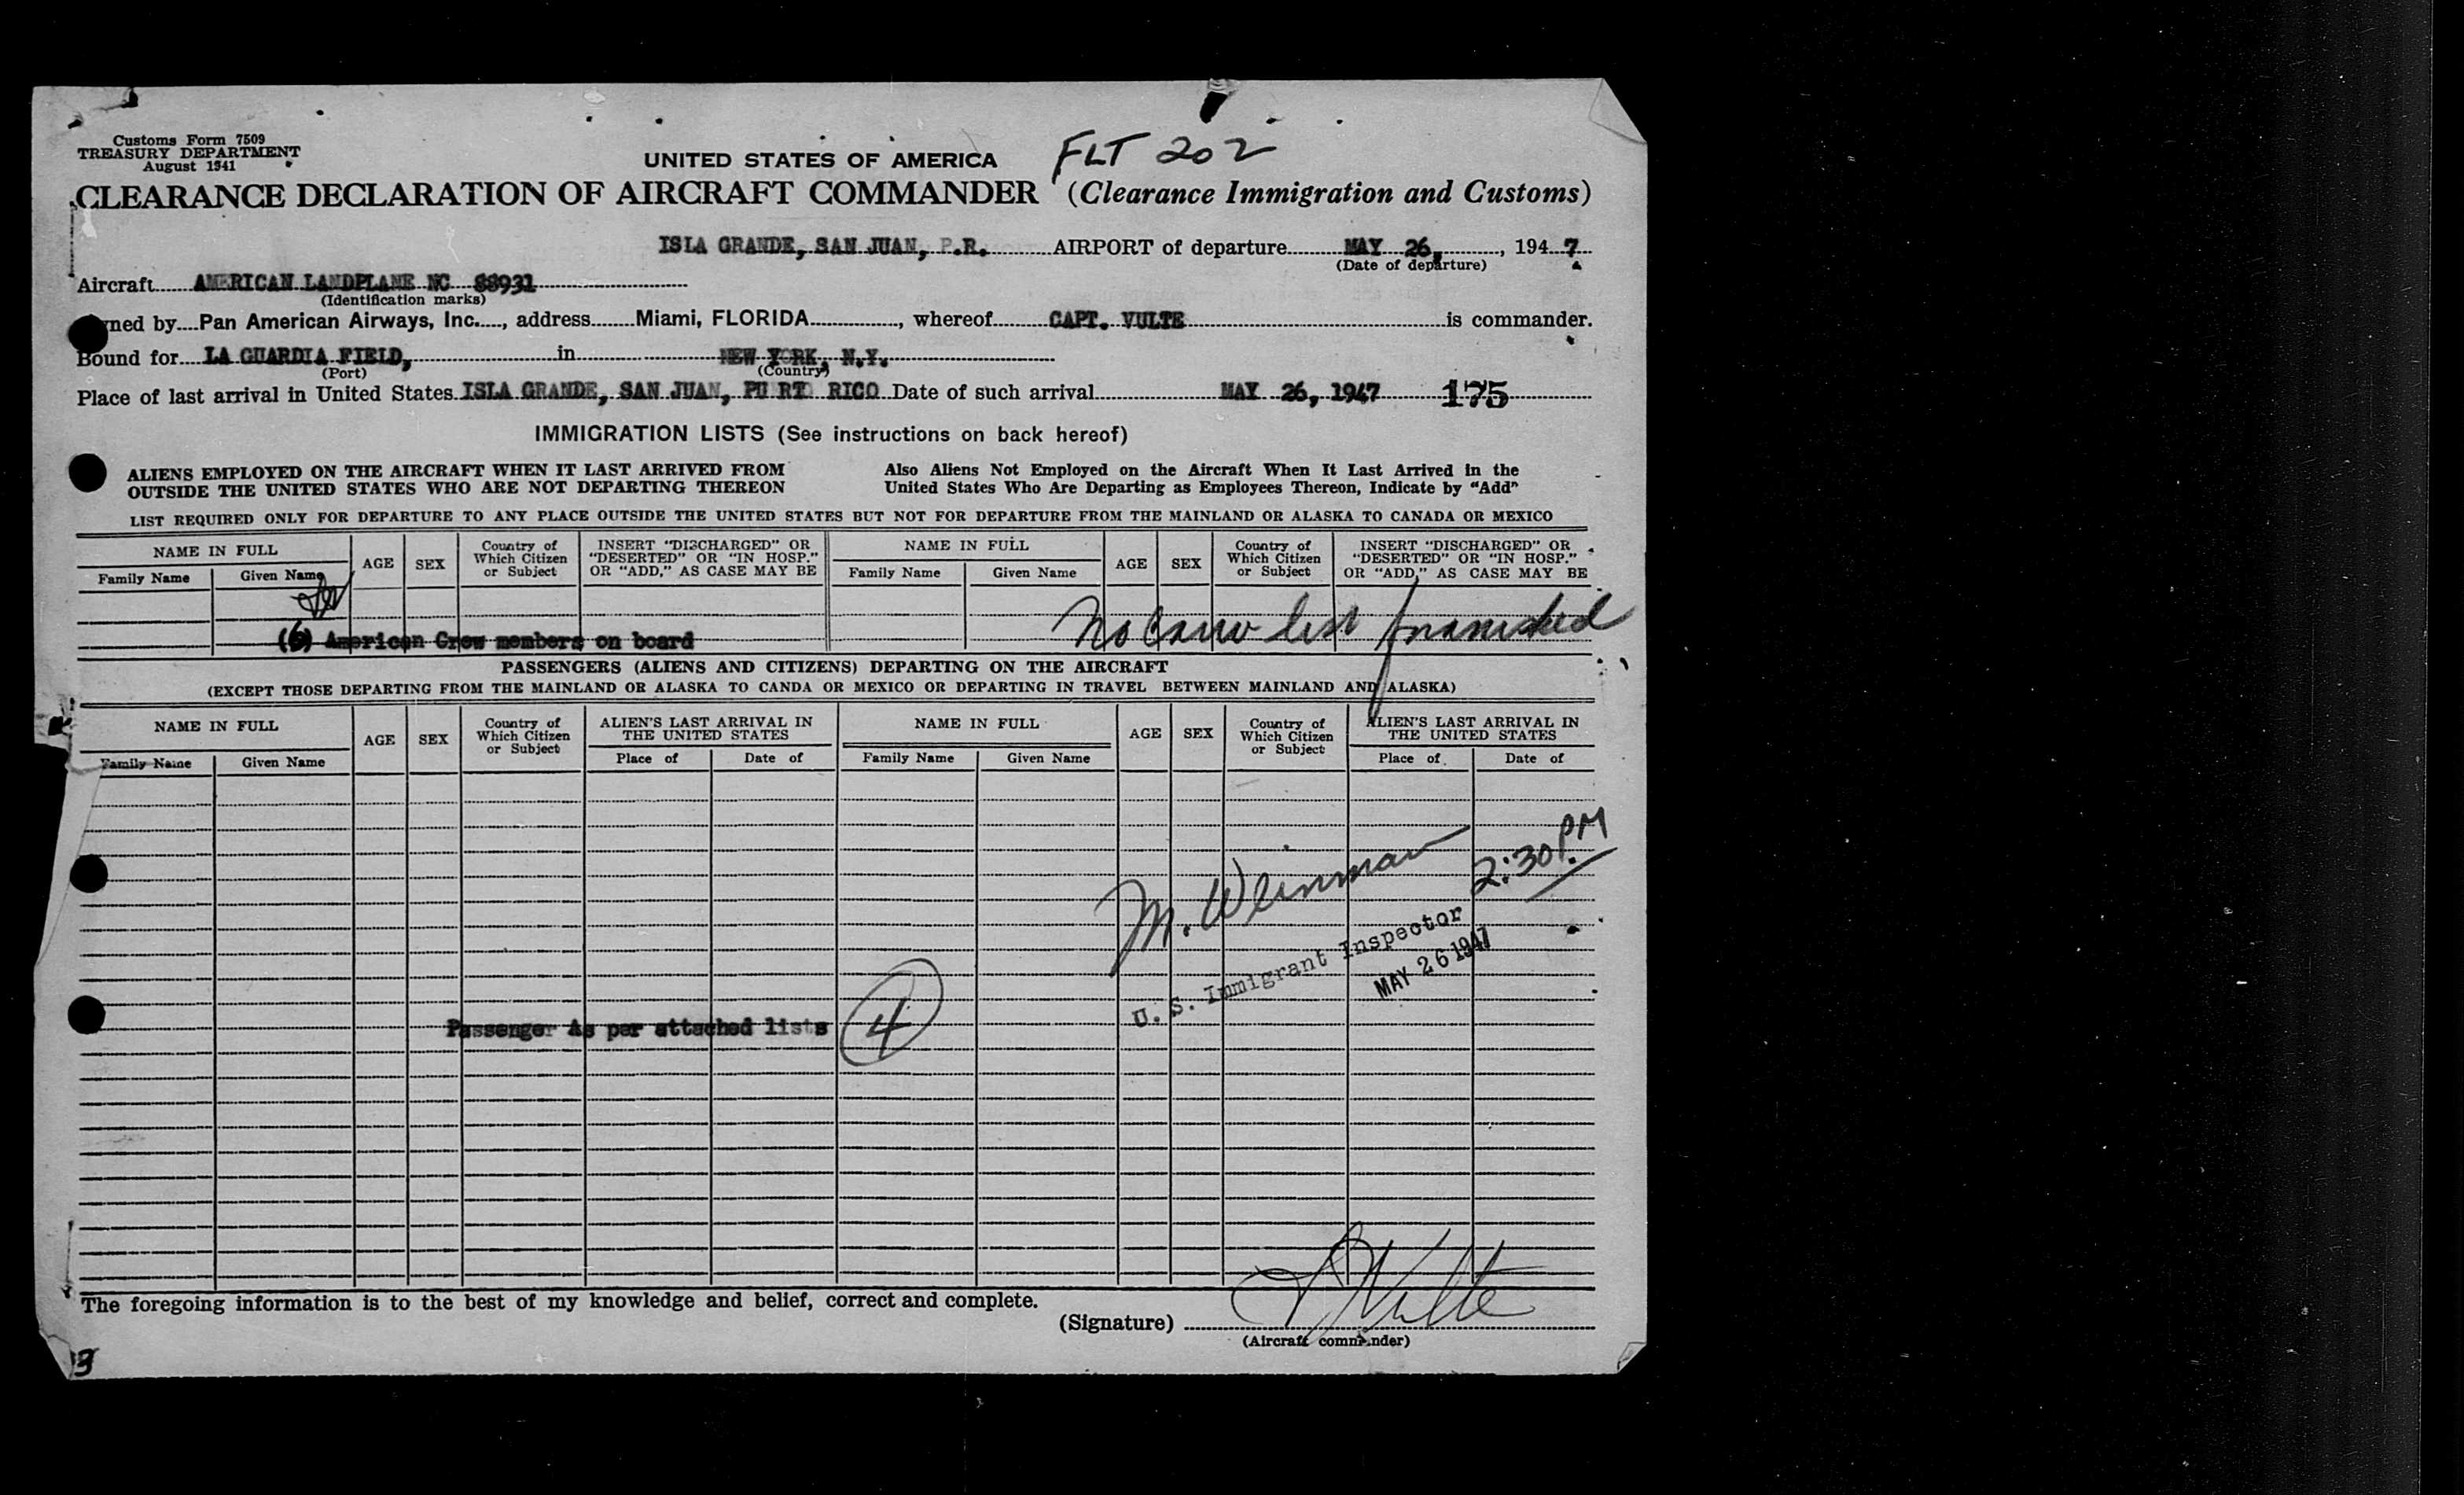 Customs Form 7509
TREASURY DEPARTMENT
August 1941
UNITED STATES OF AMERICA
FLT 202
CLEARANCE DECLARATION OF AIRCRAFT COMMANDER (Clearance Immigration and Customs)
ISLA GRANDE, SAN JUAN, P.R. AIRPORT of departure MAY 26, , 194 7
(Date of departure)
Aircraft AMERICAN LANDPLANE NC 88931
(Identification marks)
ned by Pan American Airways, Inc. , address Miami, FLORIDA , whereof CAPT. VULTE is commander.
Bound for LA GUARDIA FIELD, in NEW YORK, N.Y.
(Port) (Country)
Place of last arrival in United States ISLA GRANDE, SAN JUAN, PU RT RICO Date of such arrival MAY 26, 1947 175
IMMIGRATION LISTS (See instructions on back hereof)
ALIENS EMPLOYED ON THE AIRCRAFT WHEN IT LAST ARRIVED FROM
OUTSIDE THE UNITED STATES WHO ARE NOT DEPARTING THEREON
Also Aliens Not Employed on the Aircraft When It Last Arrived in the
United States Who Are Departing as Employees Thereon, Indicate by "Add"
LIST REQUIRED ONLY FOR DEPARTURE TO ANY PLACE OUTSIDE THE UNITED STATES BUT NOT FOR DEPARTURE FROM THE MAINLAND OR ALASKA TO CANADA OR MEXICO
NAME IN FULL
Family Name Given Name
AGE
SEX
Country of
Which Citizen
or Subject
INSERT "DISCHARGED" OR
"DESERTED" OR "IN HOSP."
OR "ADD," AS CASE MAY BE
NAME IN FULL
Family Name Given Name
AGE
SEX
Country of
Which Citizen
or Subject
INSERT "DISCHARGED" OR
"DESERTED" OR "IN HOSP."
OR "ADD," AS CASE MAY BE
(6) American Crew members on board
No list
PASSENGERS (ALIENS AND CITIZENS) DEPARTING ON THE AIRCRAFT
(EXCEPT THOSE DEPARTING FROM THE MAINLAND OR ALASKA TO CANDA OR MEXICO OR DEPARTING IN TRAVEL BETWEEN MAINLAND AND ALASKA)
NAME IN FULL
Family Name Given Name
AGE
SEX
Country of
Which Citizen
or Subject
ALIEN'S LAST ARRIVAL IN
THE UNITED STATES
Place of Date of
NAME IN FULL
Family Name Given Name
AGE
SEX
Country of
Which Citizen
or Subject
ALIEN'S LAST ARRIVAL IN
THE UNITED STATES
Place of Date of
M. Weinman 2:30 PM
U. S. Immigrant Inspector
MAY 26 1947
Passenger As per attached lists 4
The foregoing information is to the best of my knowledge and belief, correct and complete.
(Signature) Vulte
(Aircraft commander)
3